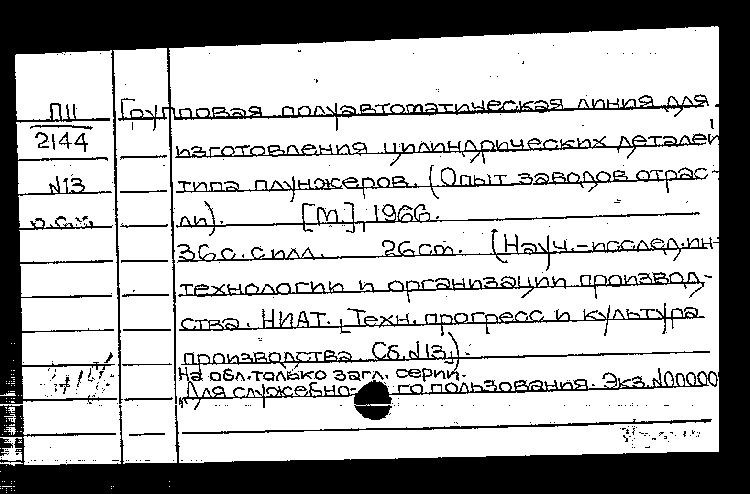 П11
2144
N13
Групповая полуавтоматическая линия для
изготовления цилиндрических деталей
типа плунжеров. (Опыт заводов отрас-
ли). [М.], 1966.
36с. с илл. 26см. (Науч.-исслед. ин-
технологии и организации производ-
ства. НИАТ. [Техн. прогресс и культура
производства. Сб. N13]).
На обл. только загл. серии.
"Для служебного пользования. Экз. N00000